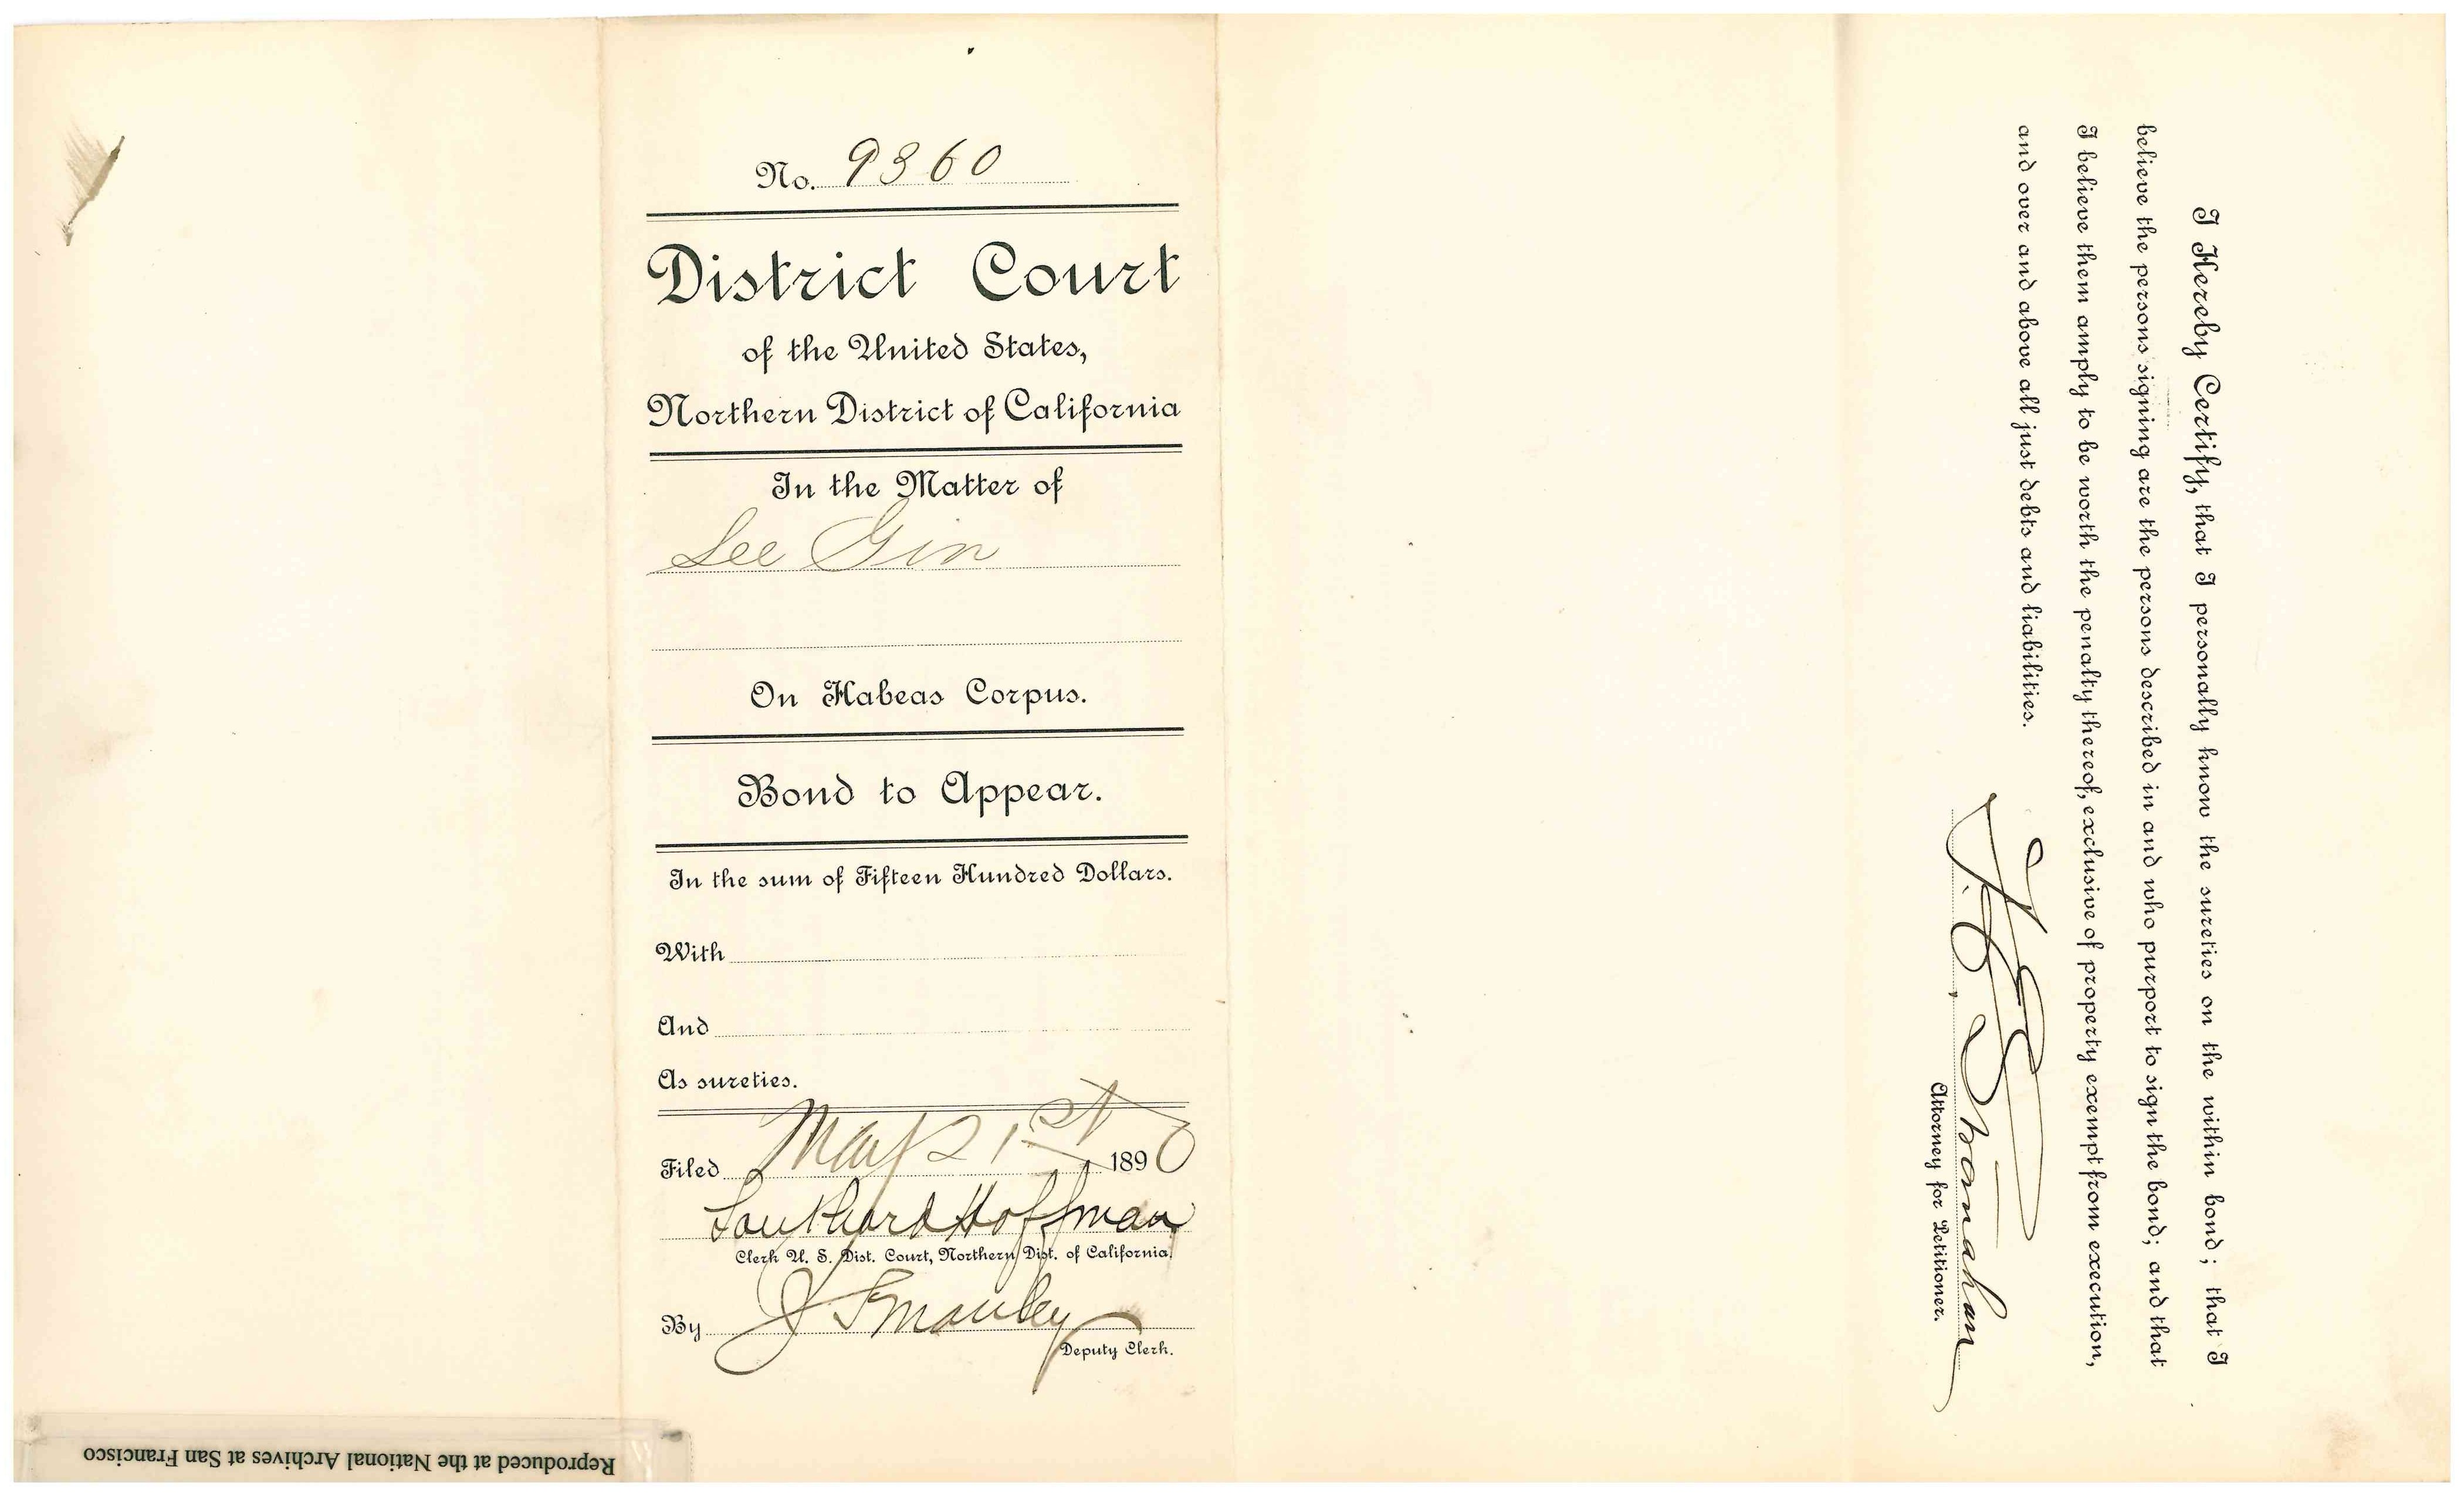 No. 9360
District Court
of the United States,
Northern District of California
In the Matter of
Lee Gin
On Habeas Corpus.
Bond to Appear.
In the sum of Fifteen Hundred Dollars.
With
And
As sureties.
Filed May 21st 1890
Southard Hoffman
Clerk U. S. Dist. Court, Northern Dist. of California.
By J S Manley
Deputy Clerk.
I Hereby Certify, that I personally know the sureties on the within bond; that I
believe the persons signing are the persons described in and who purport to sign the bond; and that
I believe them amply to be worth the penalty thereof, exclusive of property exempt from execution,
and over and above all just debts and liabilities.
Attorney for Petitioner.
Reproduced at the National Archives at San Francisco